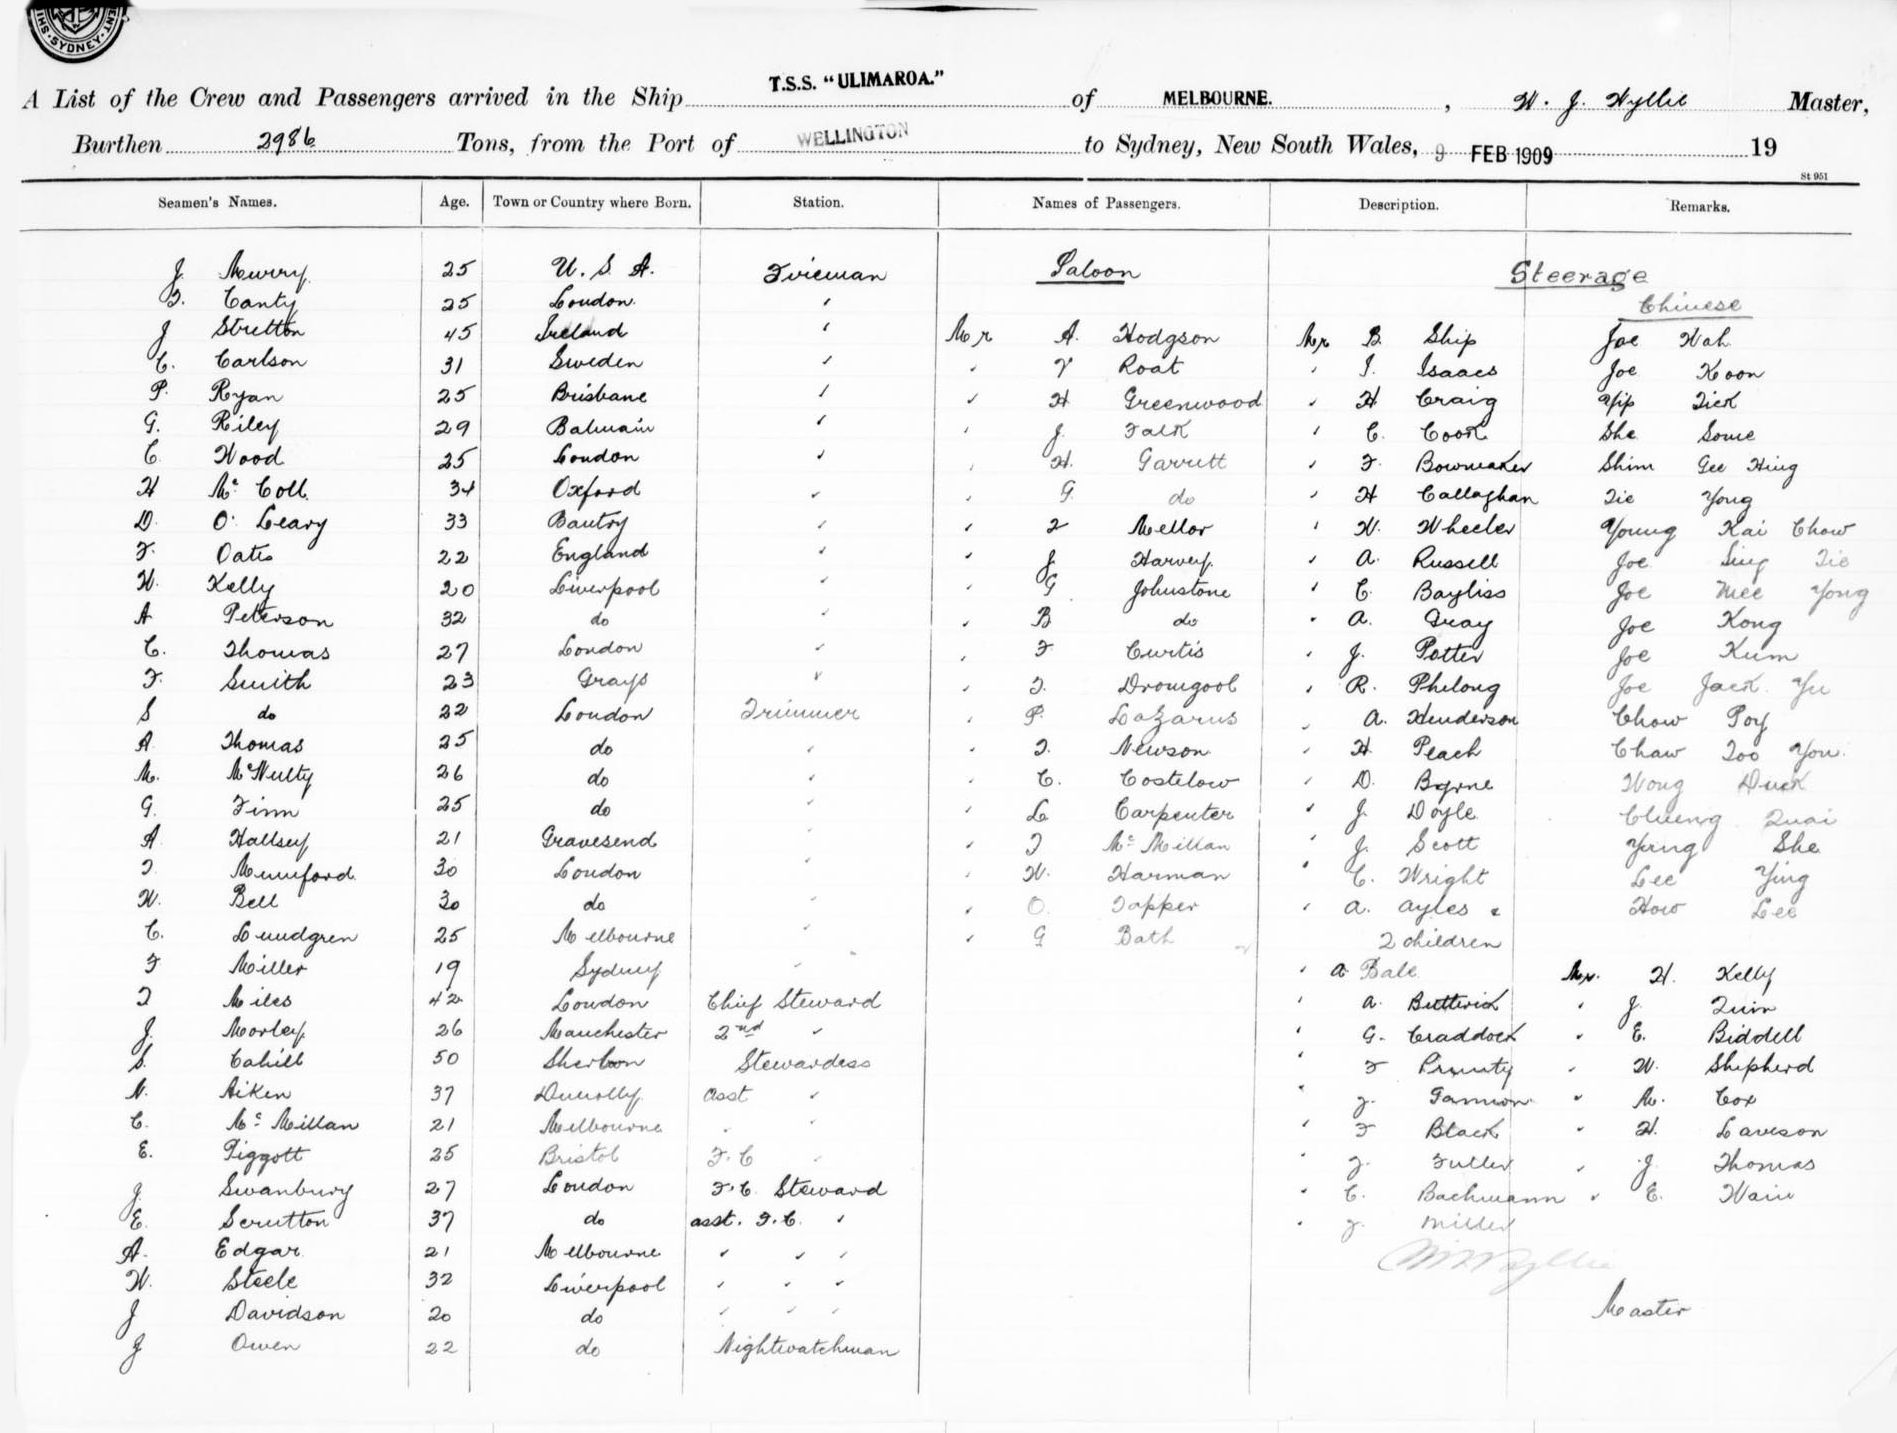 SYDNEY
A List of the Crew and Passengers arrived in the Ship T.S.S. "ULIMAROA." of MELBOURNE. , W. J. Wyllie Master,
Burthen 2986 Tons, from the Port of WELLINGTON to Sydney, New South Wales, 9 FEB 1909 19
St 951
Seamen's Names. Age. Town or Country where Born. Station. Names of Passengers. Description. Remarks.
J. 25 U. S. A. Fireman Saloon Steerage
T. Canty 25 London. " Chinese
J Stretton 45 Ireland " Mr A. Hodgson Mr B. Ship Joe Wah
C. Carlson 31 Sweden " " V Roat " I. Isaacs Joe Koon
P. Ryan 25 Brisbane " " H Greenwood " H Craig Yip Tick
G. Riley 29 Balmain " " J. Falk " C. Cook She Some
C. Wood 25 London " " H. Garrett " F. Bowmaker Shim Gee Hing
H McColl 34 Oxford " " G. do " H Callaghan Tie Yong
D. O'Leary 33 Bantry " " Mellor " W. Wheeler Young Kai Chow
F. Oates 22 England " " J Harvey. " A. Russell Joe Sing Tie
W. Kelly 20 Liverpool " " G Johnstone " C. Bayliss Joe Mee Yong
A Peterson 32 do " " B do " A. Gray Joe Kong
C. Thomas 27 London " " F Curtis " J. Potter Joe Kum
F. Smith 23 Grays " " T. Dromgool " R. Philong Joe Jack Yu
S do 22 London Trimmer " P. Lazarus " A. Henderson Chow Poy
A Thomas 25 do " " T. Newson " H Peach Chaw Too You
M. McNulty 26 do " " C. Costelow " D. Byrne Wong Duck
G. Finn 25 do " " L Carpenter " J. Doyle Quai
A Hallsey 21 Gravesend " " T McMillan " J. Scott Yung She
T. Mumford 30 London " " W. Harman " C. Wright Lee Ying
W. Bell 30 do " " O. Tapper " A. Ayles & How Lee
C. Lundgren 25 Melbourne " " G Bath 2 children
F Miller 19 Sydney " " A Bale Mr. H. Kelly
T Miles 42 London Chief Steward " A. Butterick " J. Quin
J. Morley 26 Manchester 2nd " " G. Craddock " E. Biddell
S. Cahill 50 Stewardess " F " W. Shepherd
N. Aiken 37 Dunolly. Asst " " J. Gannon " M. Cox
C. McMillan 21 Melbourne " " " F Black " H. Laveson
E. Piggott 25 Bristol F.C " " J. Fuller " J. Thomas
J. Swanbury 27 London F.C. Steward " C. Bachmann " E. Wain
E. Scrutton 37 do asst. F.C. " " J. Miller
A. Edgar 21 Melbourne " " " W Wyllie
W. Steele 32 Liverpool " " "
J Davidson 20 do " " " Master
J Owen 22 do Nightwatchman